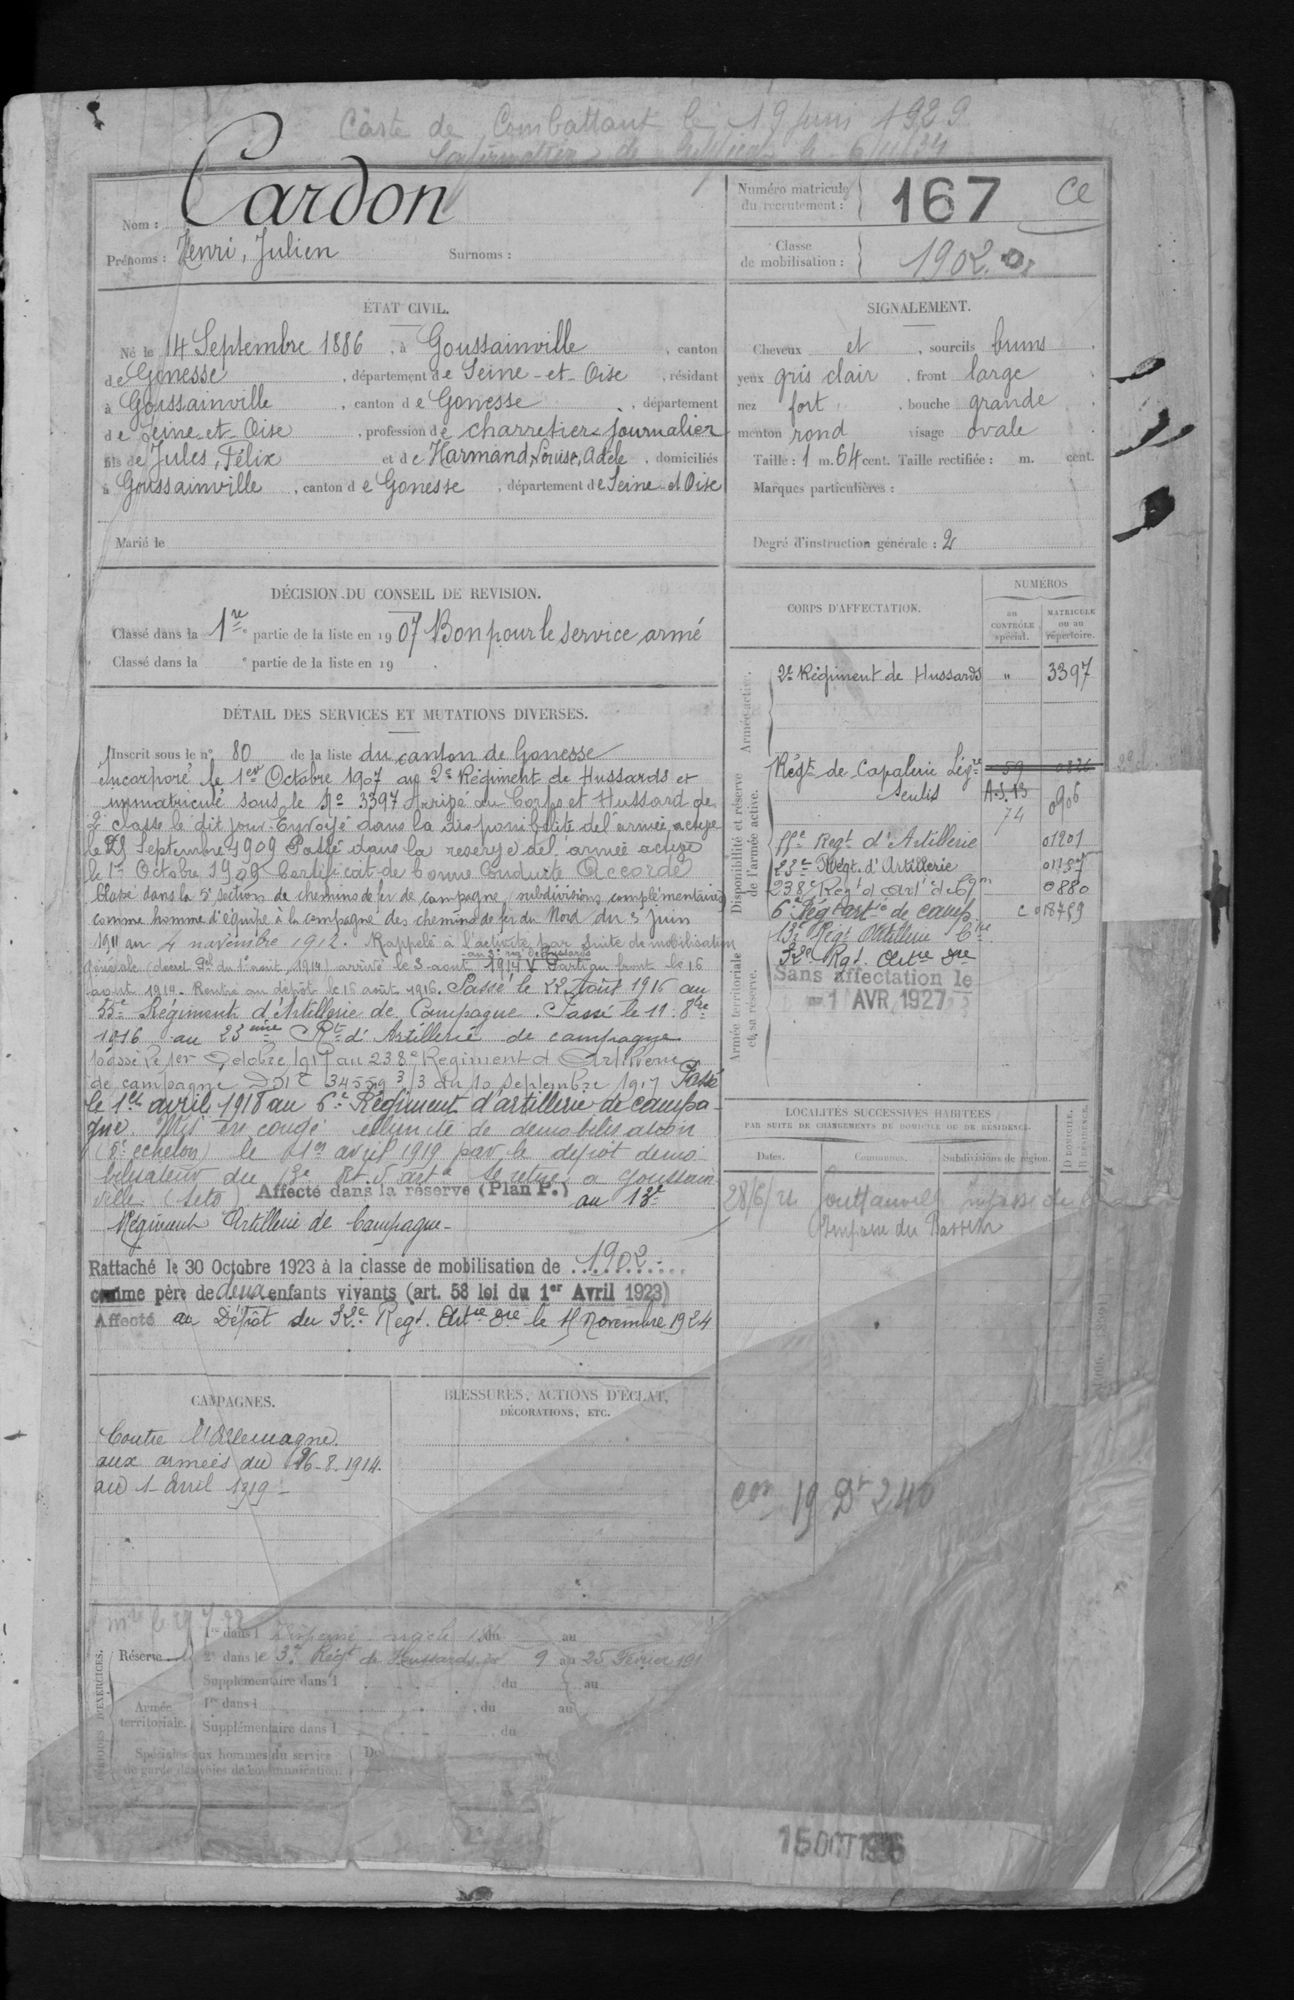 Carte de Combattant le 19 Juin 1929
Nom : Cardon
Prénoms : Henri, Julien Surnoms :
Numéro matricule du recrutement : 167 Ce
Classe de mobilisation : 1902
ÉTAT CIVIL.
Né le 14 Septembre 1886, à Goussainville, canton
de Gonesse, département de Seine-et-Oise, résidant
à Goussainville, canton de Gonesse, département
de Seine-et-Oise, profession de charretier journalier
fils de Jules, Félix et de Harmand, Louise, Adèle, domiciliés
à Goussainville, canton de Gonesse, département de Seine et Oise
Marié le
SIGNALEMENT.
Cheveux et, sourcils bruns
yeux gris clair, front large
nez fort, bouche grande
menton rond visage ovale
Taille : 1 m. 64 cent. Taille rectifiée : m. cent.
Marques particulières :
Degré d'instruction générale : 2
DÉCISION DU CONSEIL DE REVISION.
Classé dans la 1re partie de la liste en 1907 Bon pour le service armé
Classé dans la e partie de la liste en 19 .
DÉTAIL DES SERVICES ET MUTATIONS DIVERSES.
Inscrit sous le n° 80 de la liste du canton de Gonesse
Incorporé le 1er Octobre 1907 au 2e Régiment de Hussards et
immatriculé sous le No 3397 Arrivé au Corps et Hussard de
2e classe le dit jour Envoyé dans la disponibilité de l'armée active
le 25 Septembre 1909 Passé dans la réserve de l'armée active
le 1er Octobre 1909 Certificat de bonne Conduite Accordé
Classé dans la 5e section de chemins de fer de campagne (subdivisions complémentaires)
comme homme d'équipe à la compagnie des chemins de fer du Nord du 3 juin
1911 au 4 novembre 1912. Rappelé à l'activité par suite de mobilisation
générale (décret Pel du 1er août 1914) arrivé le 3 août 1914 Parti au front le 16
août 1914. Rentré au dépôt le 16 août 1916. Passé le 22 Août 1916 au
55e Régiment d'Artillerie de Campagne. Passé le 11 8bre
1916 au 23ème Rt d'Artillerie de campagne
Passé le 1er Octobre 1917 au 238e Régiment d'Artillerie
de campagne 34559 3/3 du 10 Septembre 1917 Passé
le 1er avril 1918 au 6e Régiment d'artillerie de campa-
gne. Mis en congé illimité de démobilisation
(5e échelon) le 1er avril 1919 par le dépôt démo-
bilisateur du 13e Rt d'art. Se retire à Goussain-
ville (Seto) Affecté dans la réserve (Plan P.) au 13e
Régiment Artillerie de Campagne -
Rattaché le 30 Octobre 1923 à la classe de mobilisation de 1902
comme père de deux enfants vivants (art. 58 loi du 1er Avril 1923)
Affecté au Dépôt du 32e Regt. Artie Dre le 15 Novembre 1924
CORPS D'AFFECTATION.
NUMÉROS
au CONTRÔLE spécial.
MATRICULE ou au répertoire.
Armée active.
2e Régiment de Hussards " 3397
Disponibilité et réserve de l'armée active.
Régt de Cavalerie Légre 59 0836
Senlis A.S. 13 74 0906
55e Regt d'Artillerie 01201
23e Regt. d'Artillerie
238e Regt d'Art. de Cgne 0880
6e Régt artie de camp.
13e Regt Artillerie Cne
Armée territoriale et sa réserve.
32e Rgt. Artie Dre
Sans affectation le
1 AVR. 1927
LOCALITÉS SUCCESSIVES HABITÉES
PAR SUITE DE CHANGEMENTS DE DOMICILE OU DE RÉSIDENCE.
Dates. Communes. Subdivisions de région. D DOMICILE. R RÉSIDENCE.
28/6/21 Goussainville impasse de
Impasse du Bassin
CAMPAGNES.
Contre l'Allemagne
aux armées du 16-8-1914
au 1 Avril 1919 -
BLESSURES, ACTIONS D'ÉCLAT,
DÉCORATIONS, ETC.
19 Dt 240
PÉRIODES D'EXERCICES.
Réserve
1re dans l du au
2e dans le 3e Régt de Hussards du 9 au 25 Février 191
Supplémentaire dans l , du au
Armée territoriale.
1re dans l , du au
Supplémentaire dans l , du
Spéciales aux hommes du service
de garde des voies de communication.
De